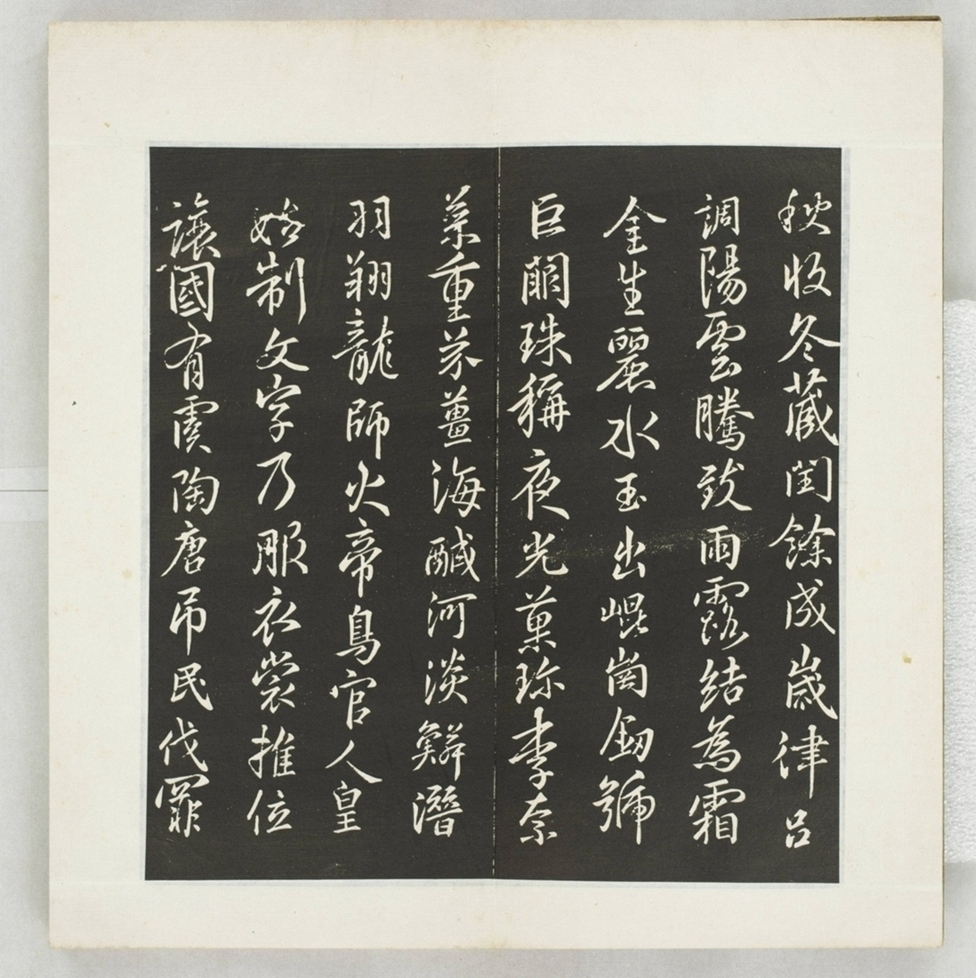 秋收冬藏閏餘成歲律呂
調陽雲騰致雨露結為霜
金生麗水玉出崐崗劔號
巨闕珠稱夜光菓珎李奈
菜重芥薑海醎河淡鱗潛
羽翔龍師火帝鳥官人皇
始制文字乃服衣裳推位
讓國有虞陶唐弔民伐罪